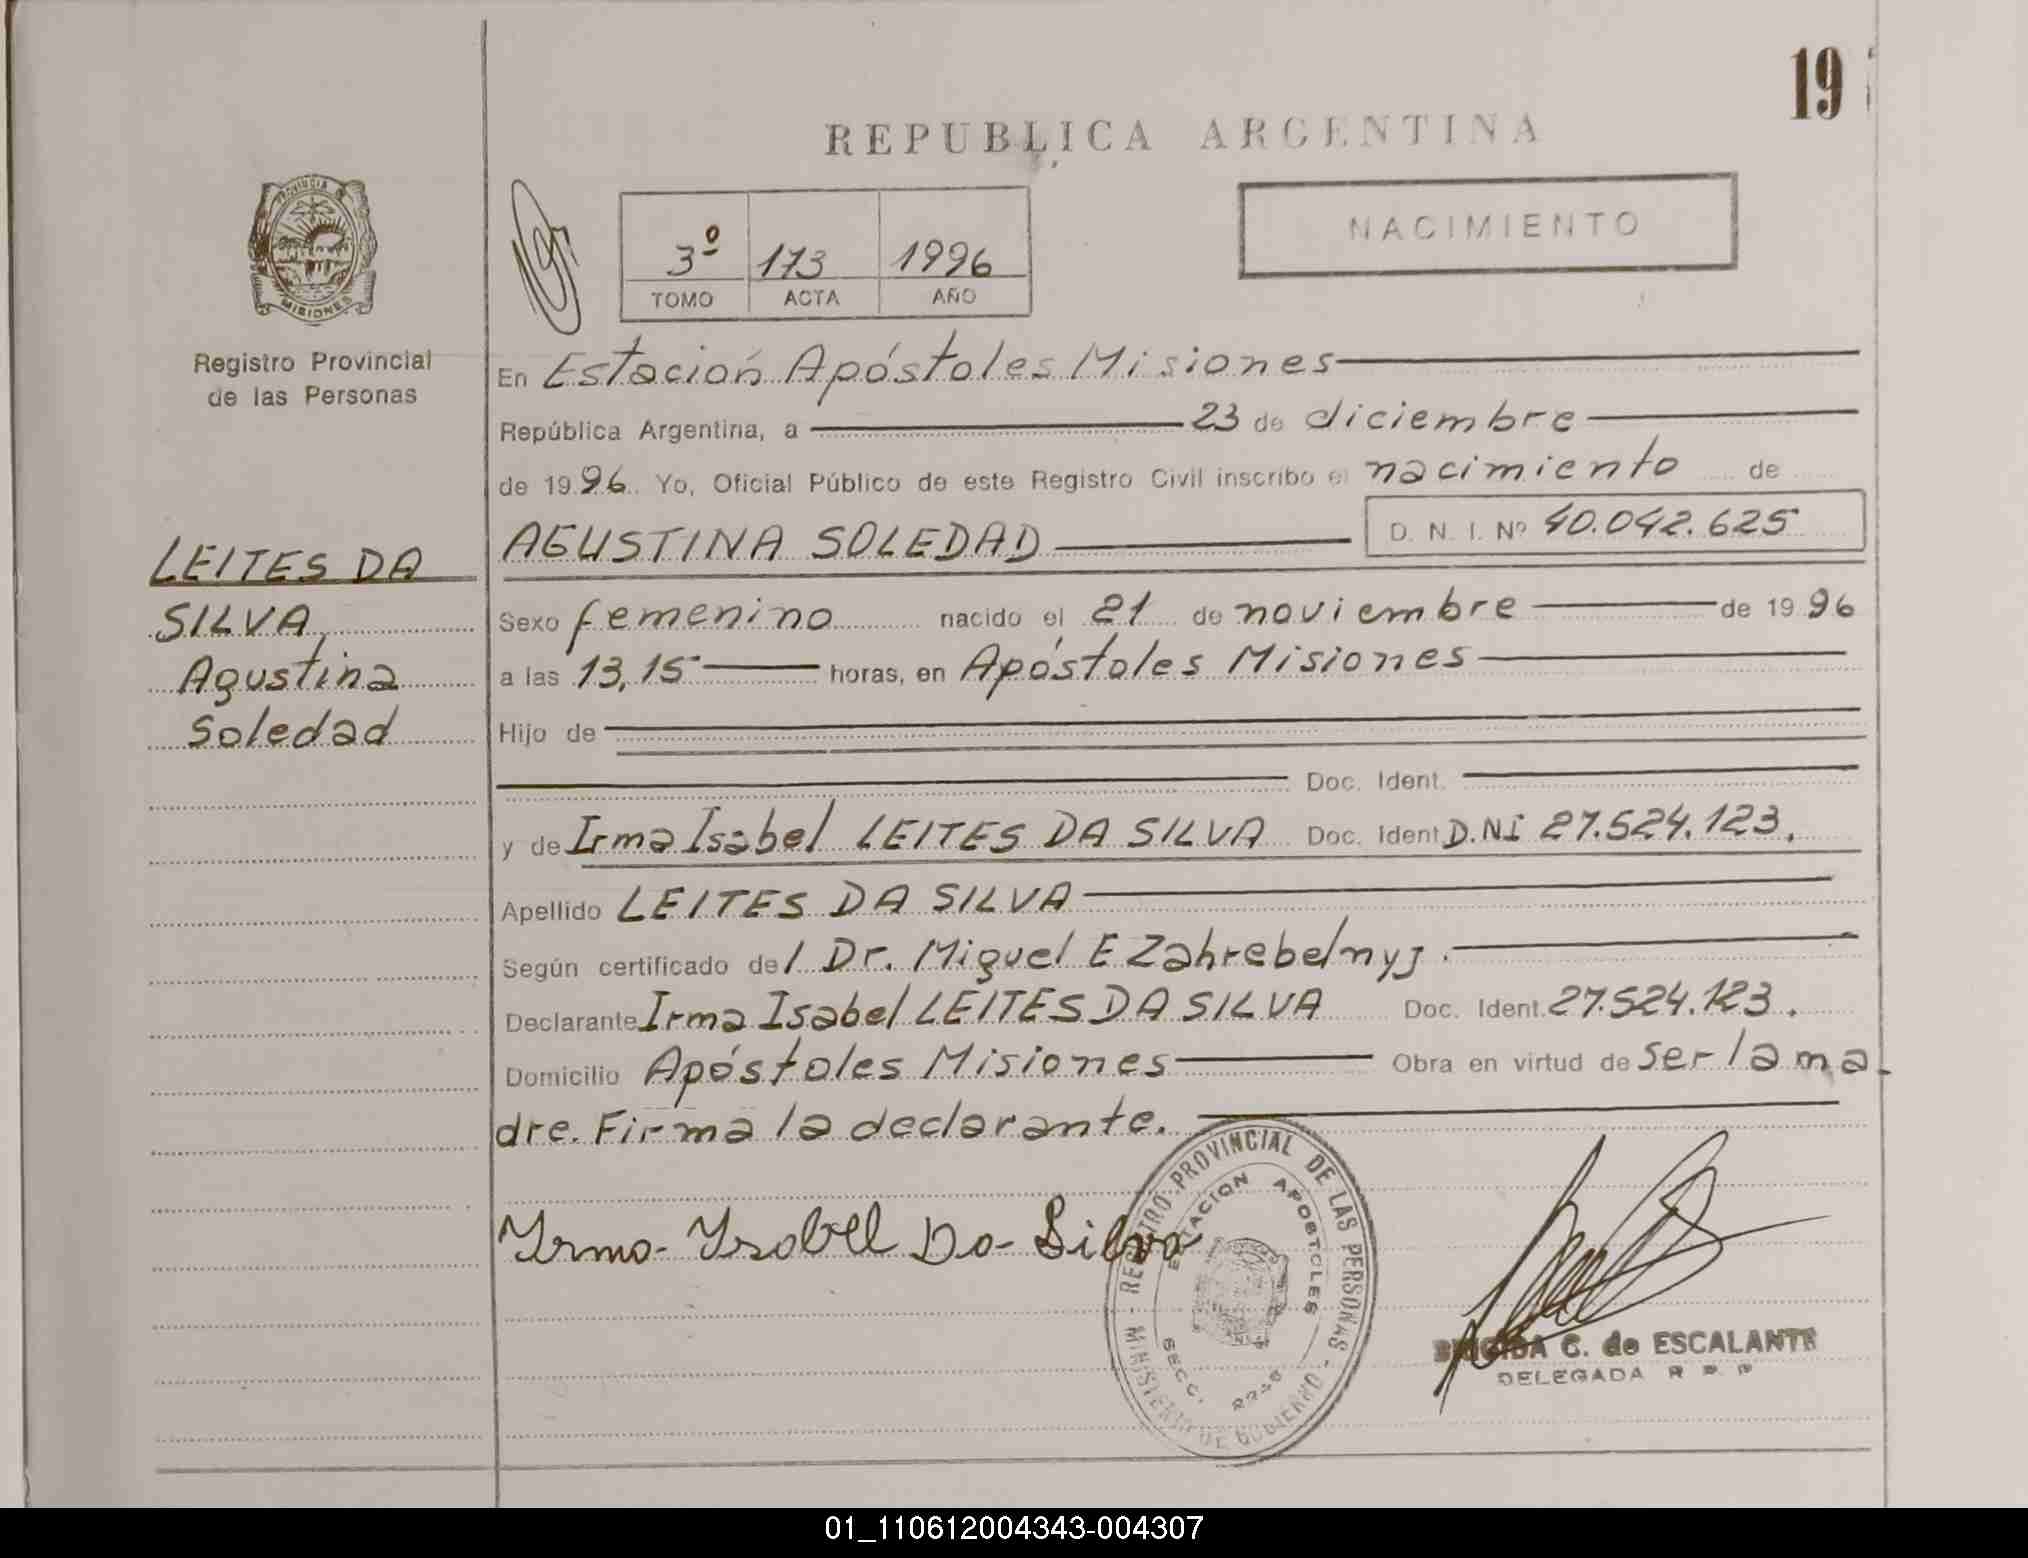 19
REPUBLICA ARGENTINA
PROVINCIA
MISIONES
Registro Provincial
de las Personas
3º 173 1996
TOMO ACTA AÑO
NACIMIENTO
En Estación Apóstoles Misiones
República Argentina, a 23 de diciembre
de 1996. Yo, Oficial Público de este Registro Civil inscribo el nacimiento de
AGUSTINA SOLEDAD D. N. I. Nº 40.042.625
LEITES DA
SILVA
Agustina
Soledad
Sexo femenino nacido el 21 de noviembre de 1996
a las 13,15 horas, en Apóstoles Misiones
Hijo de
Doc. Ident.
y de Irma Isabel LEITES DA SILVA Doc. Ident D.NI 27.524.123.
Apellido LEITES DA SILVA
Según certificado del Dr. Miguel E Zahrebelnyj.
Declarante Irma Isabel LEITES DA SILVA Doc. Ident. 27.524.123.
Domicilio Apóstoles Misiones Obra en virtud de ser la ma-
dre. Firma la declarante.
Yrma Ysabel Da Silva
REGISTRO PROVINCIAL DE LAS PERSONAS - MINISTERIO DE GOBIERNO -
ESTACION APOSTOLES
SECC.
BRIGIDA G. de ESCALANTE
DELEGADA R P P
01_110612004343-004307